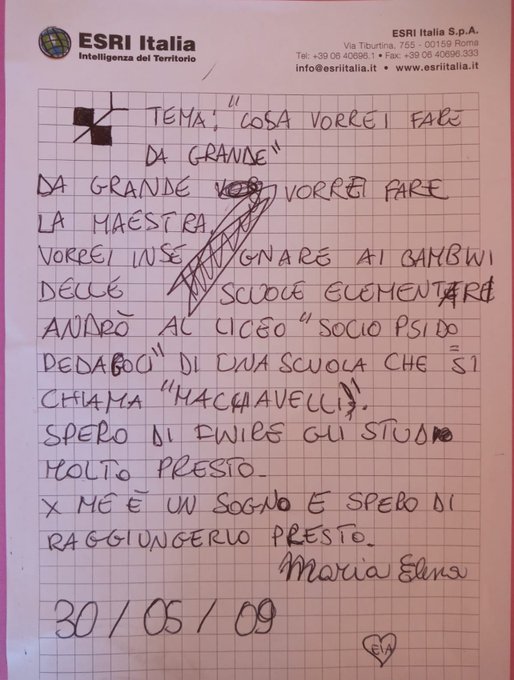 ESRI Italia
Intelligenza del Territorio
ESRI Italia S.p.A.
Via Tiburtina, 755 - 00159 Roma
Tel: +39 06 40696.1 • Fax: +39 06 40696.333
info@esriitalia.it • www.esriitalia.it
TEMA: "COSA VORREI FARE
DA GRANDE"
DA GRANDE VORREI FARE
LA MAESTRA.
VORREI INSEGNARE AI BAMBINI
DELLE SCUOLE ELEMENTARI
ANDRÒ AL LICEO "SOCIO PSIDO
PEDAGOCI" DI UNA SCUOLA CHE SI
CHIAMA "MACHIAVELLI".
SPERO DI FINIRE GLI STUDI
MOLTO PRESTO.
X ME È UN SOGNO E SPERO DI
RAGGIUNGERLO PRESTO.
Maria Elena
30/05/09